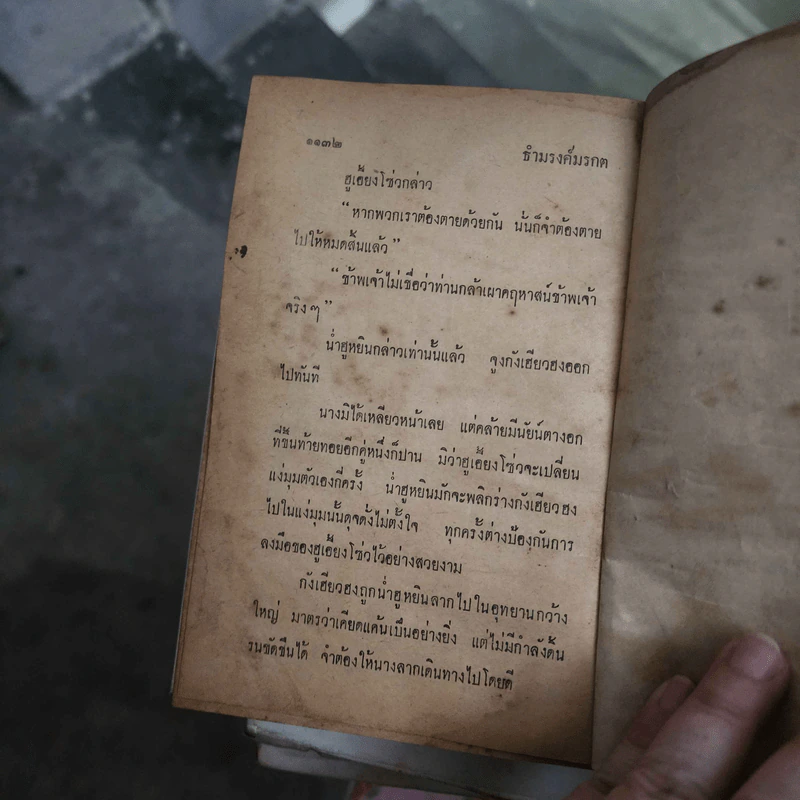 ๑๑๓๒ ธำมรงค์มรกต
ฮูเอี้ยงโซ่วกล่าว
“หากพวกเราต้องตายด้วยกัน นั่นก็จำต้องตาย
ไปให้หมดสิ้นแล้ว”
“ข้าพเจ้าไม่เชื่อว่าท่านกล้าเผาคฤหาสน์ข้าพเจ้า
จริงๆ”
น่ำฮูหยินกล่าวเท่านั้นแล้ว จูงกังเฮียวฮงออก
ไปทันที
นางมิได้เหลียวหน้าเลย แต่คล้ายมีนัยน์ตางอก
ที่ชั้นท้ายทอยอีกคู่หนึ่งก็ปาน มิว่าฮูเอี้ยงโซ่วจะเปลี่ยน
แง่มุมตัวเองกี่ครั้ง น่ำฮูหยินมักจะพลิกร่างกังเฮียวฮง
ไปในแง่มุมนั้นดุจดังไม่ตั้งใจ ทุกครั้งต่างป้องกันการ
ลงมือของฮูเอี้ยงโซ่วไว้อย่างสวยงาม
กังเฮียวฮงถูกน่ำฮูหยินลากไปในอุทยานกว้าง
ใหญ่ มาตรว่าเคียดแค้นเป็นอย่างยิ่ง แต่ไม่มีกำลังดิ้น
รนขัดขืนได้ จำต้องให้นางลากเดินทางไปโดยดี